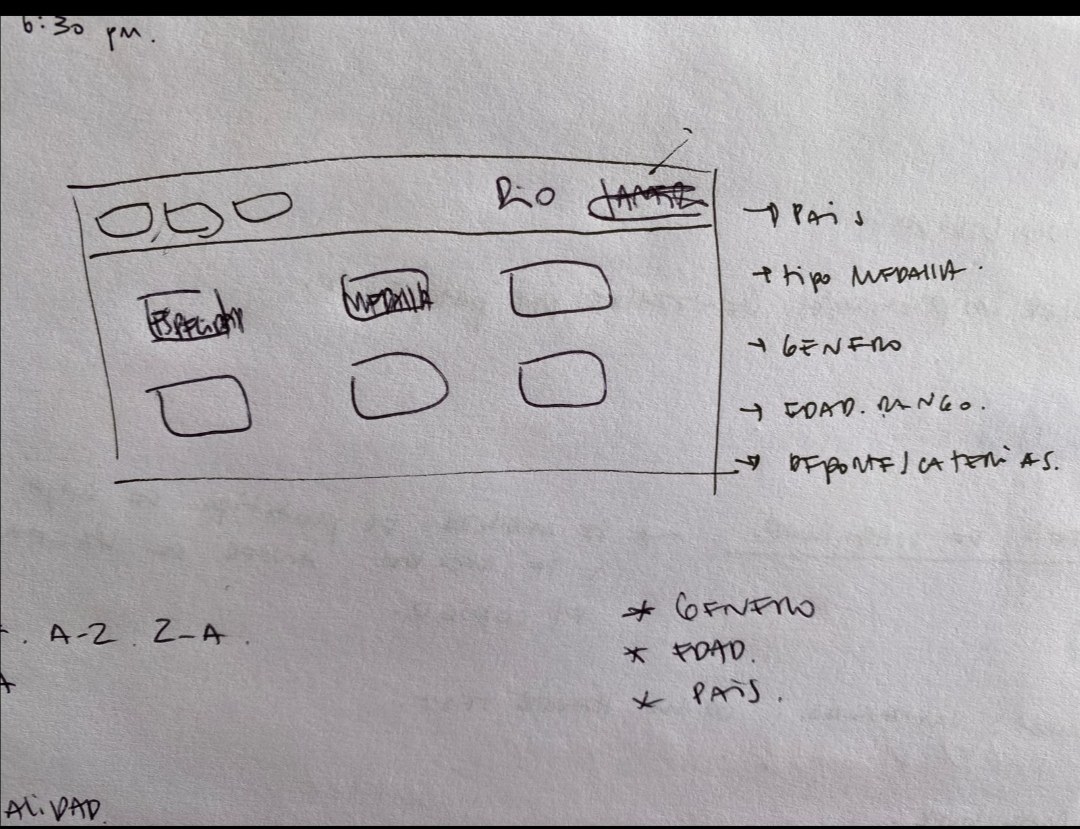 6:30 pm.
Rio
MEDALLA
→ PAÍS
→ tipo MEDALLA.
→ GENERO
→ EDAD. RANGO.
→ DEPORTE /
. A-Z. Z-A.
* GENERO
* EDAD.
* PAÍS.
ALIDAD